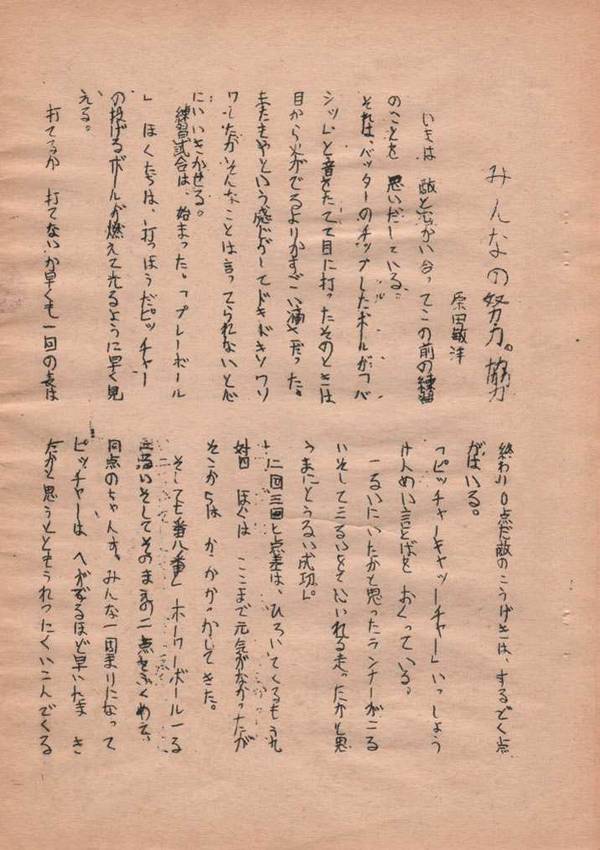 みんなの努力。協力
原田敏洋
いまは 敵と向かい合ってこの前の練習
のことを 思いだしている。
それは、バッターのチップしたボールがつバ
シッ」と音をたてて目に打ったそのときは
目から火がでるよりかすごい痛さだった。
またきやという感じがしてドキドキソワソ
ワしたがそんなことは言ってられないと心
にいいきかせる。
練習試合は、始まった。「プレーボール
」ぼくたちは、打つほうだピッチャー
の投げるボールが燃えて光るように早く見
える。
打てるか 打てないか早くも一回の表は
終わり0点だ敵のこうげきは、するどく点
がはいる。
「ピッチャーキャッーチャー」いっしょう
けんめい言とばを おくっている。
一るいにいたかと思ったランナーが二る
いそして三るいをて 走ったかと思
うまにとうるい成功。
二回三回と点差は、ひろいてくるもう九
対四 ぼくは ここまで元気がなかったが
そこからは か かかっかしてきた。
そしても番八番と ホーワーボール一る
るいそしてそのまえの二点をふくめて、
同点のちゃんす。みんな一回まりになって
ピッチャーは へがでるほど早いたま き
たかと思うとともうれつにくいこんでくる